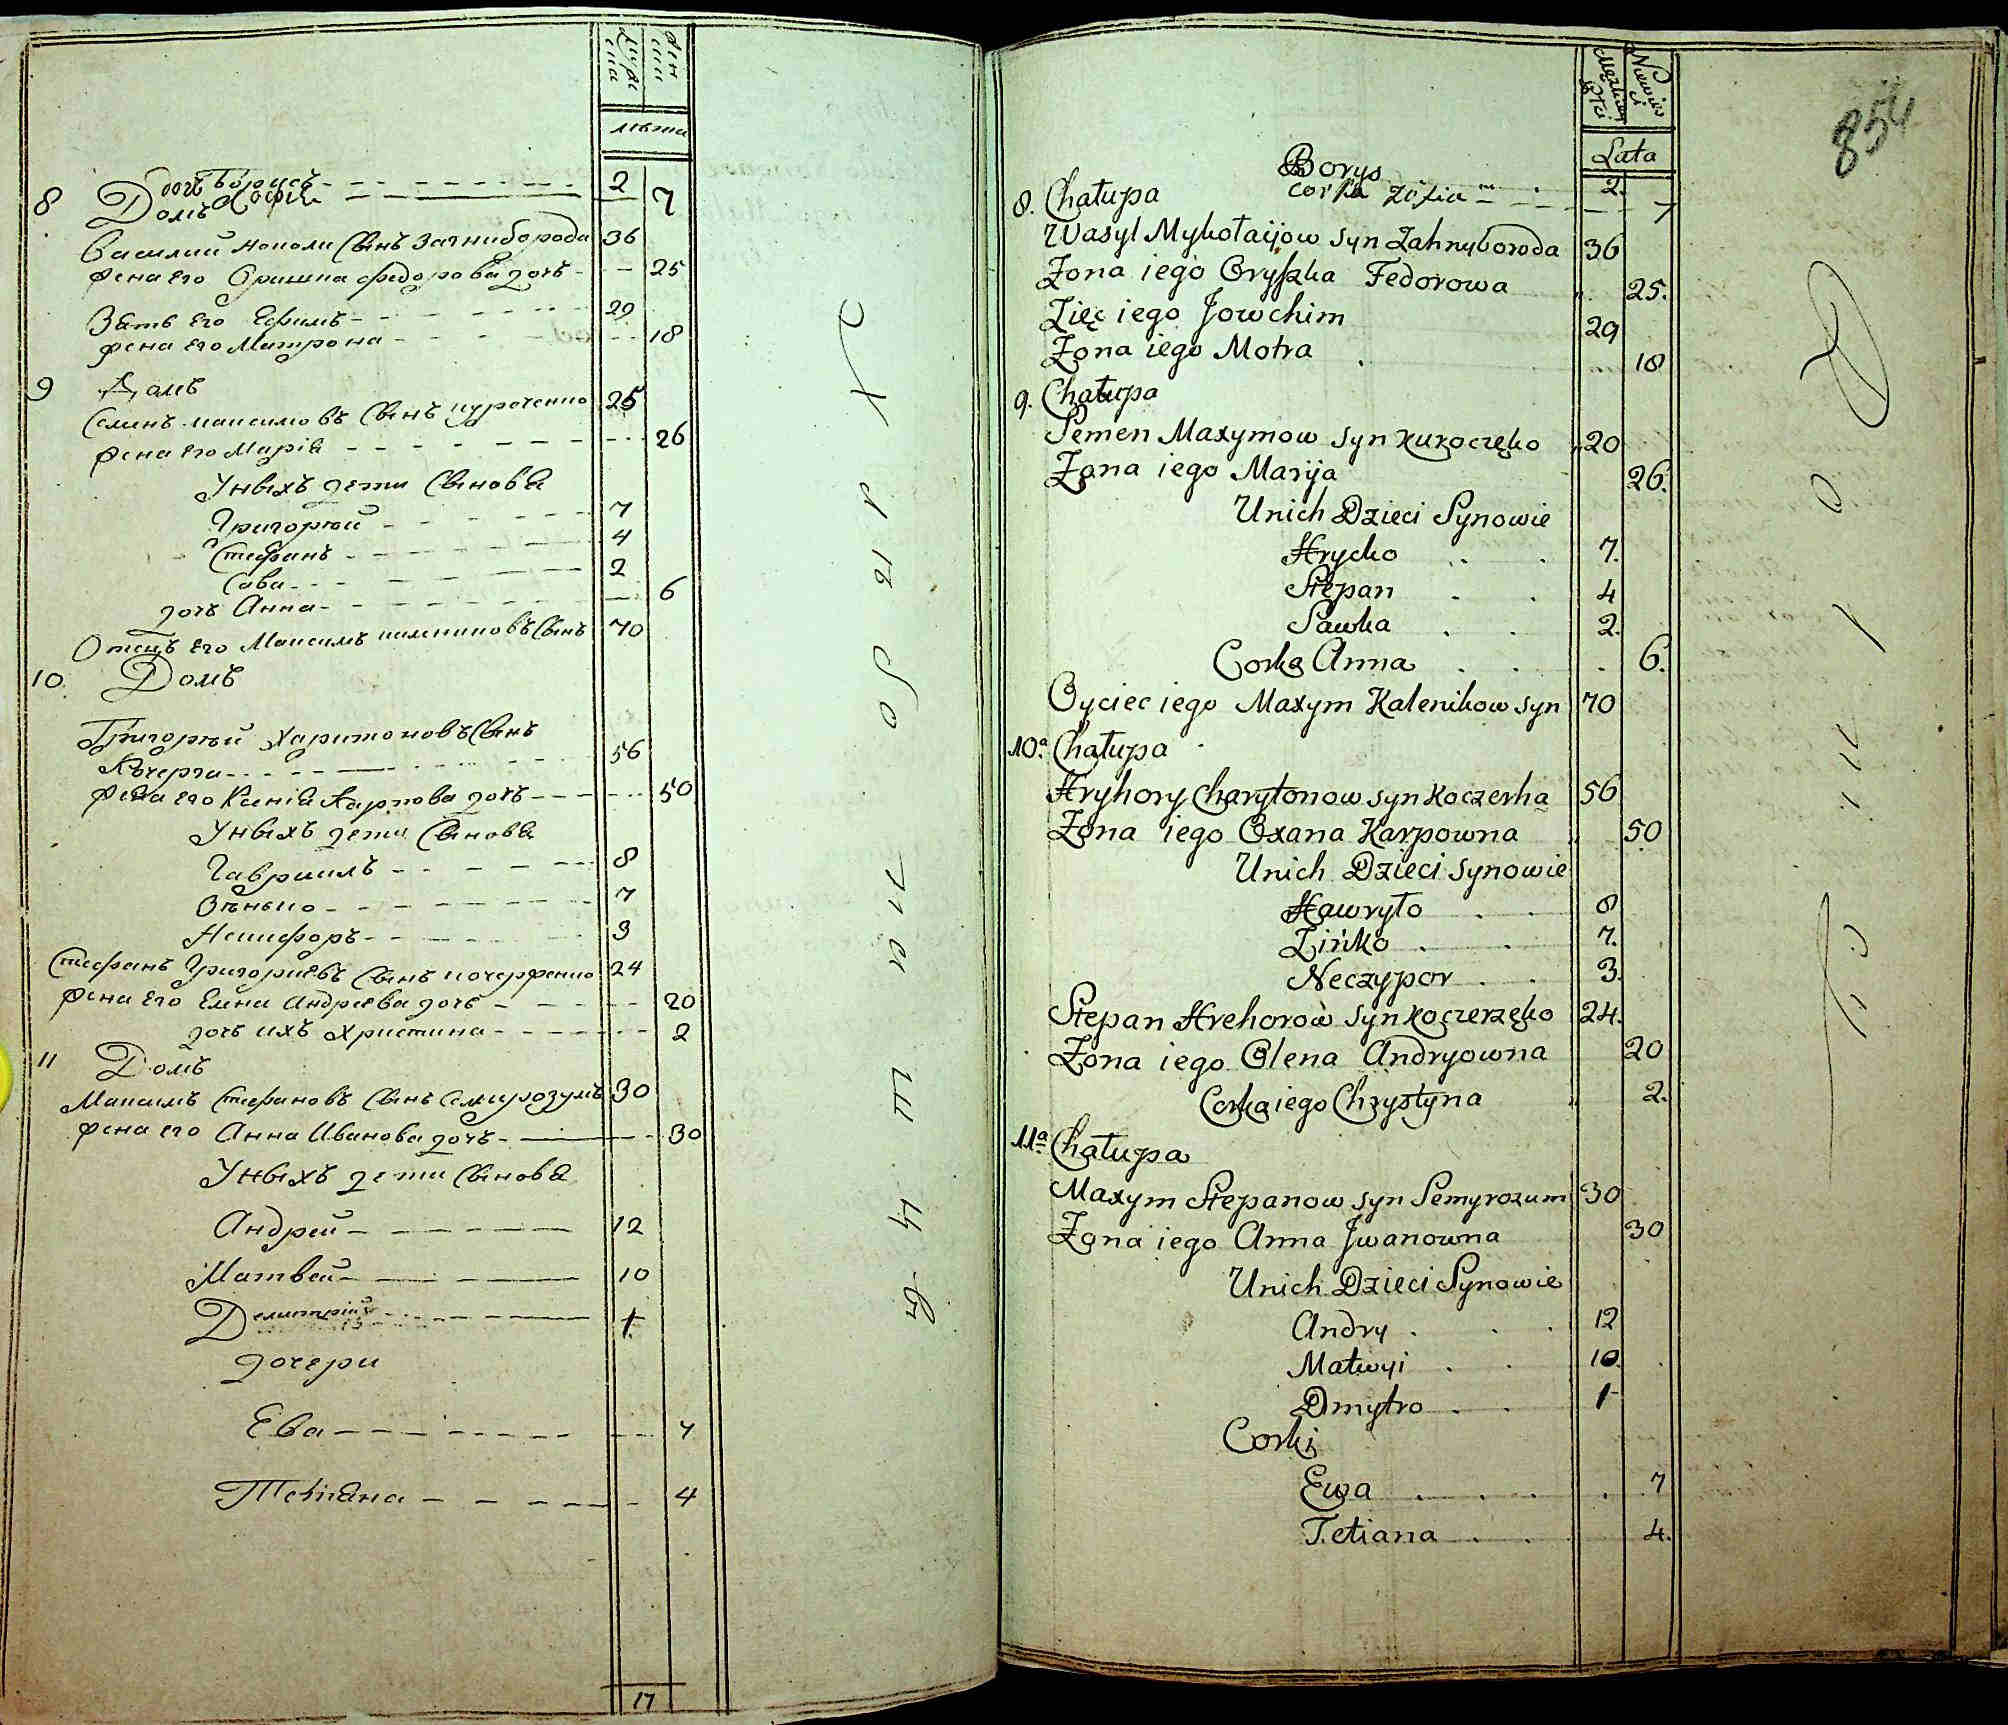 мужеска
женска
лѣта
Борисъ 2
дочъ Софіа 7
8 Домъ
Василий Николи Сынъ Загниборода 36
Жена его Оришка Федорова дочъ 25
Зать его Ефимъ 29
Жена его Матрона 18
9 Домъ
Семинъ Максимовъ Сынъ Курочецко 25
Жена его Маріа 26
Уныхъ дети Сынова
Григорий 7
Стефанъ 4
Сава 2
дочъ Анна 6
Отецъ его Максимъ Калениковъ Сынъ 70
10. Домъ
Григорий Харитоновъ Сынъ
Кочерга 56
Жена его Ксеніа Карпова дочъ 50
Уныхъ дети Сынова
Гавриилъ 8
Зѣнько 7
Никифоръ 3
Стефанъ Григориевъ Сынъ Кочерженко 24
Жена его Елена Андриева дочъ 20
дочъ ихъ Христина 2
11 Домъ
Максимъ Стефановъ Сынъ Семирозумъ 30
Жена его Анна Иванова дочъ 30
Уныхъ дети Сынова
Андрей 12
Матвей 10
Демитрій 1
дочери
Ева 7
Тетіана 4
17
854
Męzkiey Płci
Niewieści
Lata
Borys 2.
corka Zofia 7
8. Chałupa
Wasyl Mykołaijow syn Zahnyboroda 36
Zona iego Oryszka Fedorowa 25.
Zięć iego Jowchim 29
Zona iego Motra 18
9. Chałupa
Semen Maxymow syn Kuroczęko 20
Zona iego Marija 26.
Unich Dzieci Synowie
Hrycko 7.
Stepan 4
Sawka 2.
Corka Anna 6.
Oyciec iego Maxym Kalenikow syn 70
10.a Chałupa
Hryhory Charytonow syn Koczerha 56
Zona iego Oxana Karpowna 50
Unich Dzieci synowie
Hawryło 8
Zińko 7.
Neczypor 3.
Stepan Hrehorow syn Koczerzęko 24.
Zona iego Olena Andryowna 20
Corka iego Chrystyna 2.
11a Chałupa
Maxym Stepanow syn Semyrozum 30
Zona iego Anna Jwanowna 30
Unich Dzieci Synowie
Andry 12
Matwyi 10.
Dmytro 1
Corki
Ewa 7
Tetiana 4.